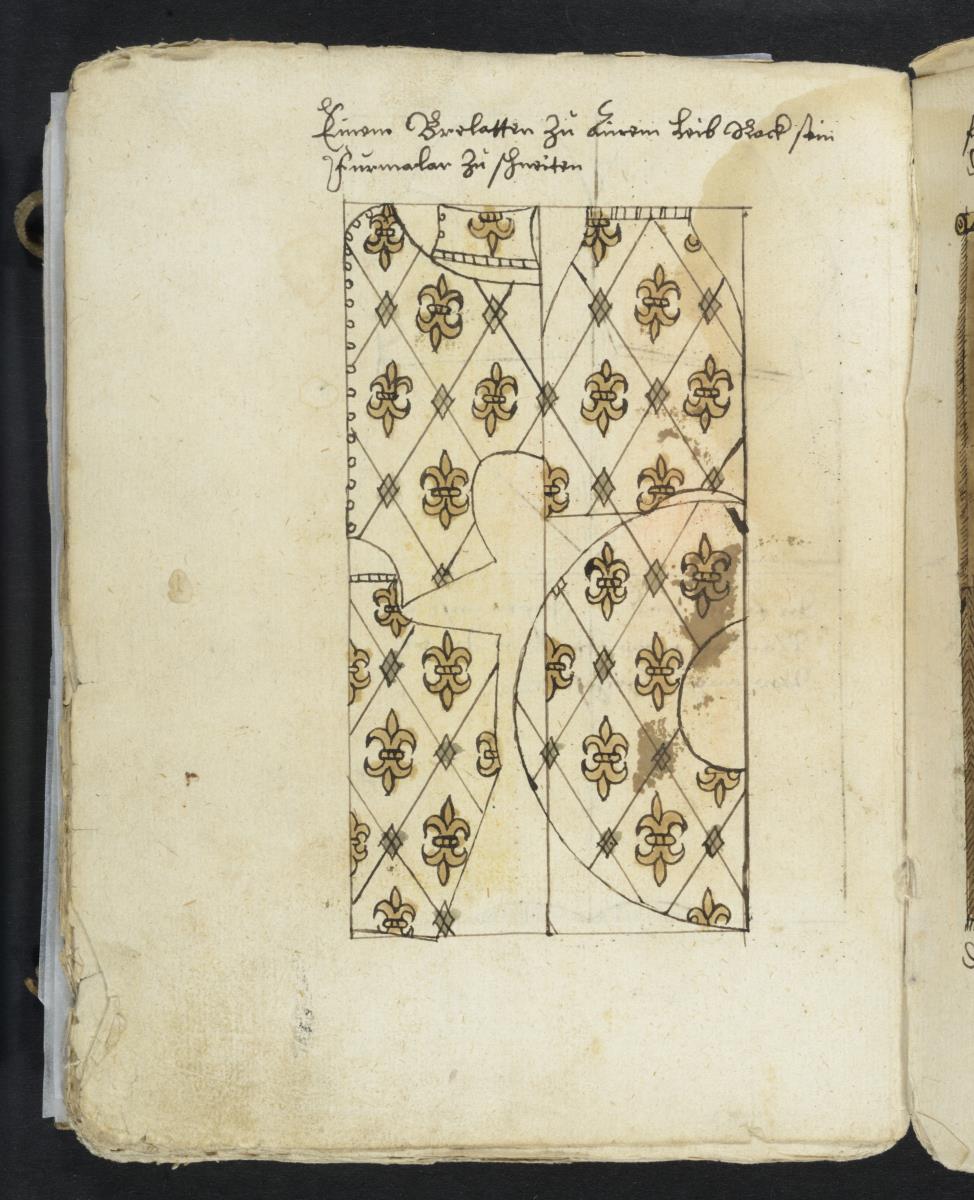 Einem Brelatten Zu Einem Leib Rock sein
Furmalar Zu schneiten